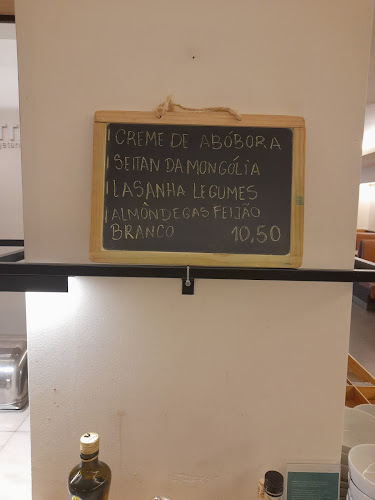 CREME DE ABÓBORA
SEITAN DA MONGÓLIA
LASANHA LEGUMES
ALMÒNDEGAS FEIJÃO
BRANCO 10,50